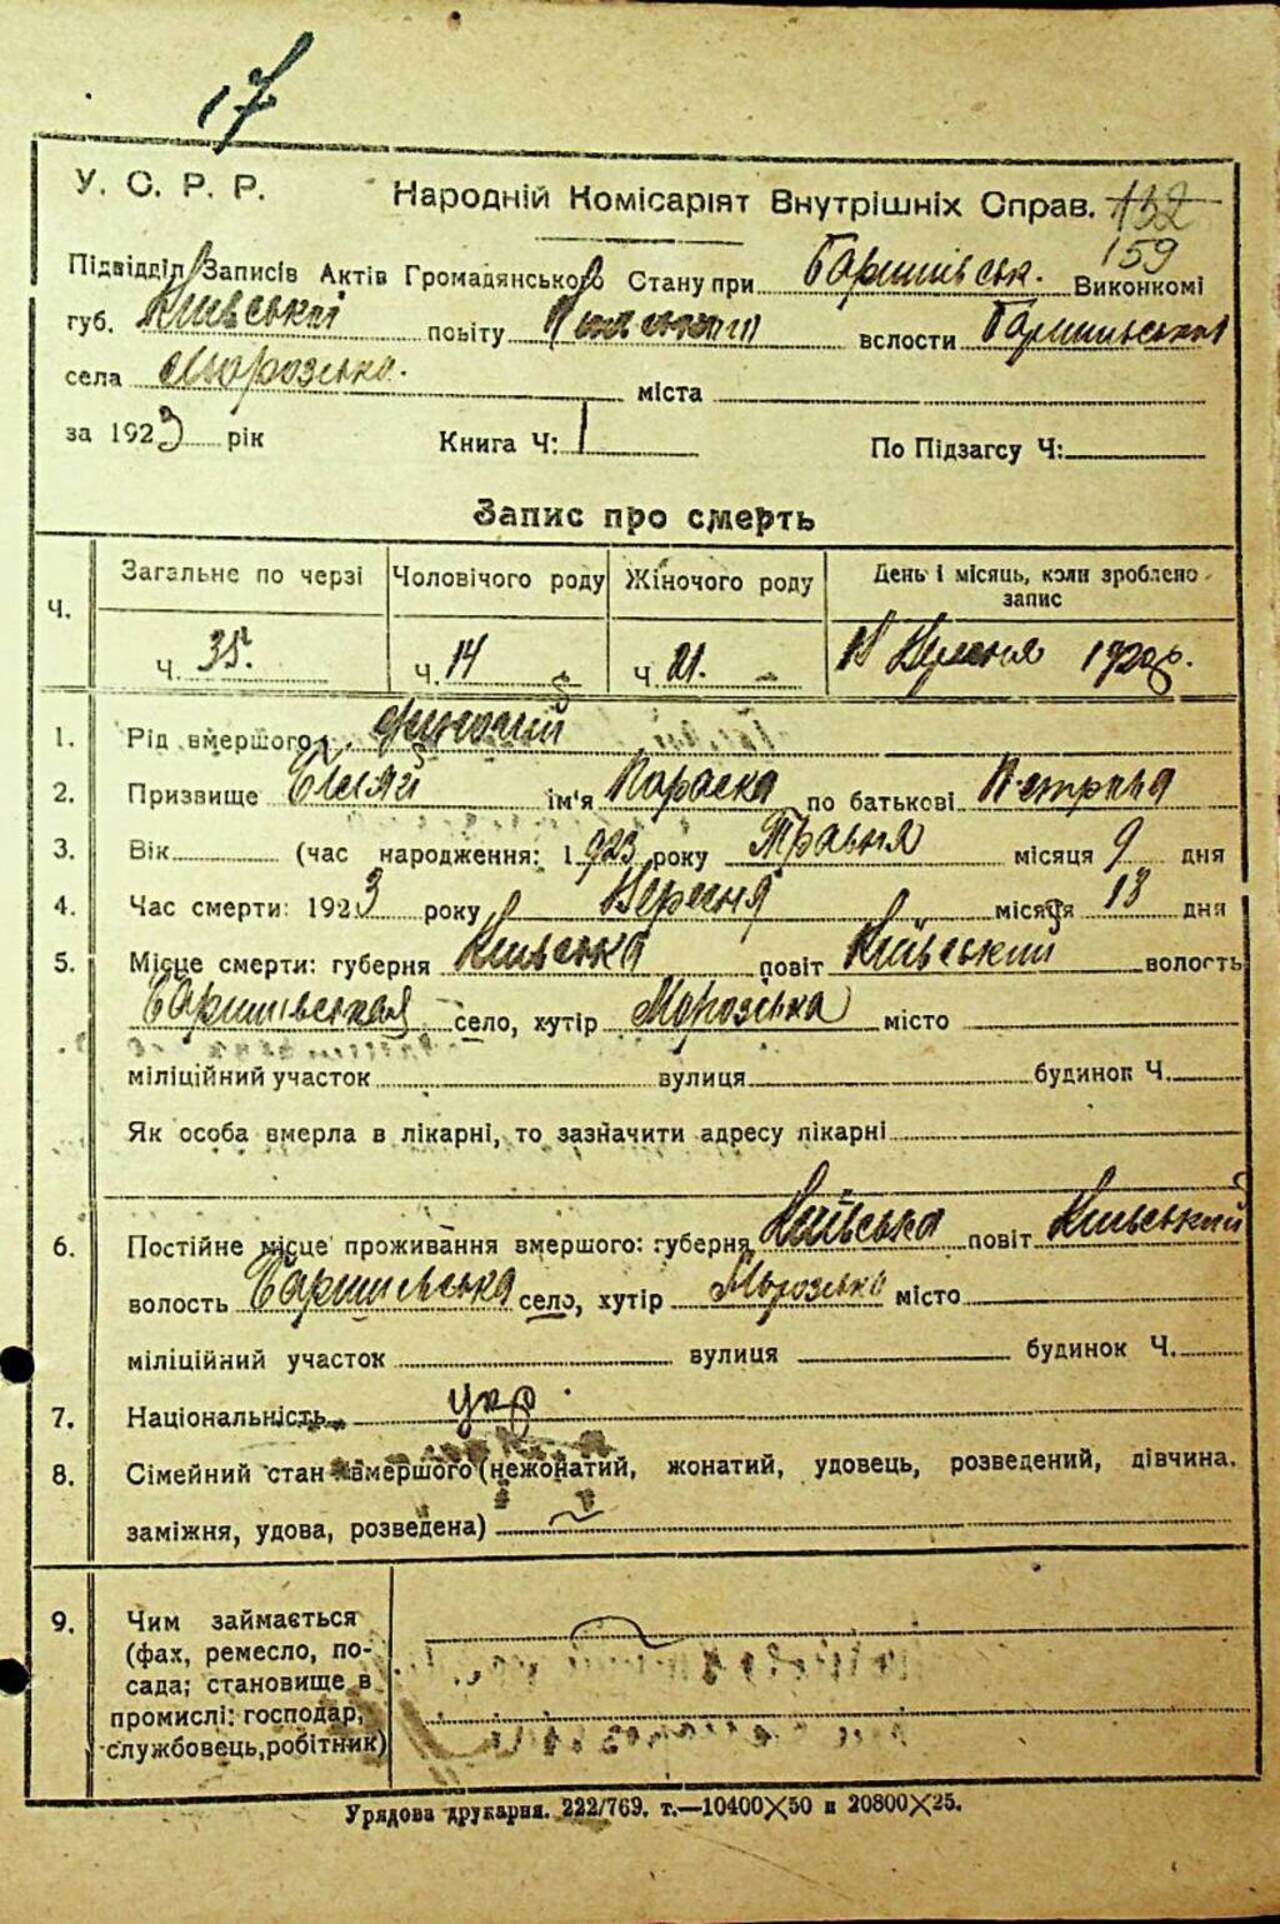 17
У. С. Р. Р. Народній Комісаріят Внутрішніх Справ. 132
159
Підвідділ Записів Актів Громадянського Стану при Баришівськ. Виконкомі
губ. Київської повіту волости Баришівської
села Морозівка. міста
за 1923 рік Книга Ч: 1 По Підзагсу Ч:
Запис про смерть
Ч. Загальне по черзі Чоловічого роду Жіночого роду День і місяць, коли зроблено запис
Ч. 35. Ч. 14 Ч. 21. Вересня
1. Рід вмершого
2. Призвище ім'я Параска по батькові Петрівна
3. Вік (час народження: 1923 року Травня місяця 9 дня
4. Час смерти: 1923 року Вересня місяця 13 дня
5. Місце смерти: губерня Київська повіт Київський волость
Баришівская село, хутір Морозівка місто
міліційний участок вулиця будинок Ч.
Як особа вмерла в лікарні, то зазначити адресу лікарні
6. Постійне місце проживання вмершого: губерня Київська повіт Київський
волость Баришівська село, хутір Морозівка місто
міліційний участок вулиця будинок Ч.
7. Національність укр.
8. Сімейний стан вмершого (нежонатий, жонатий, удовець, розведений, дівчина.
заміжня, удова, розведена)
9. Чим займається
(фах, ремесло, по-
сада; становище в
промислі: господар,
службовець, робітник)
Урядова друкарня. 222/769. т.—10400×50 и 20800×25.